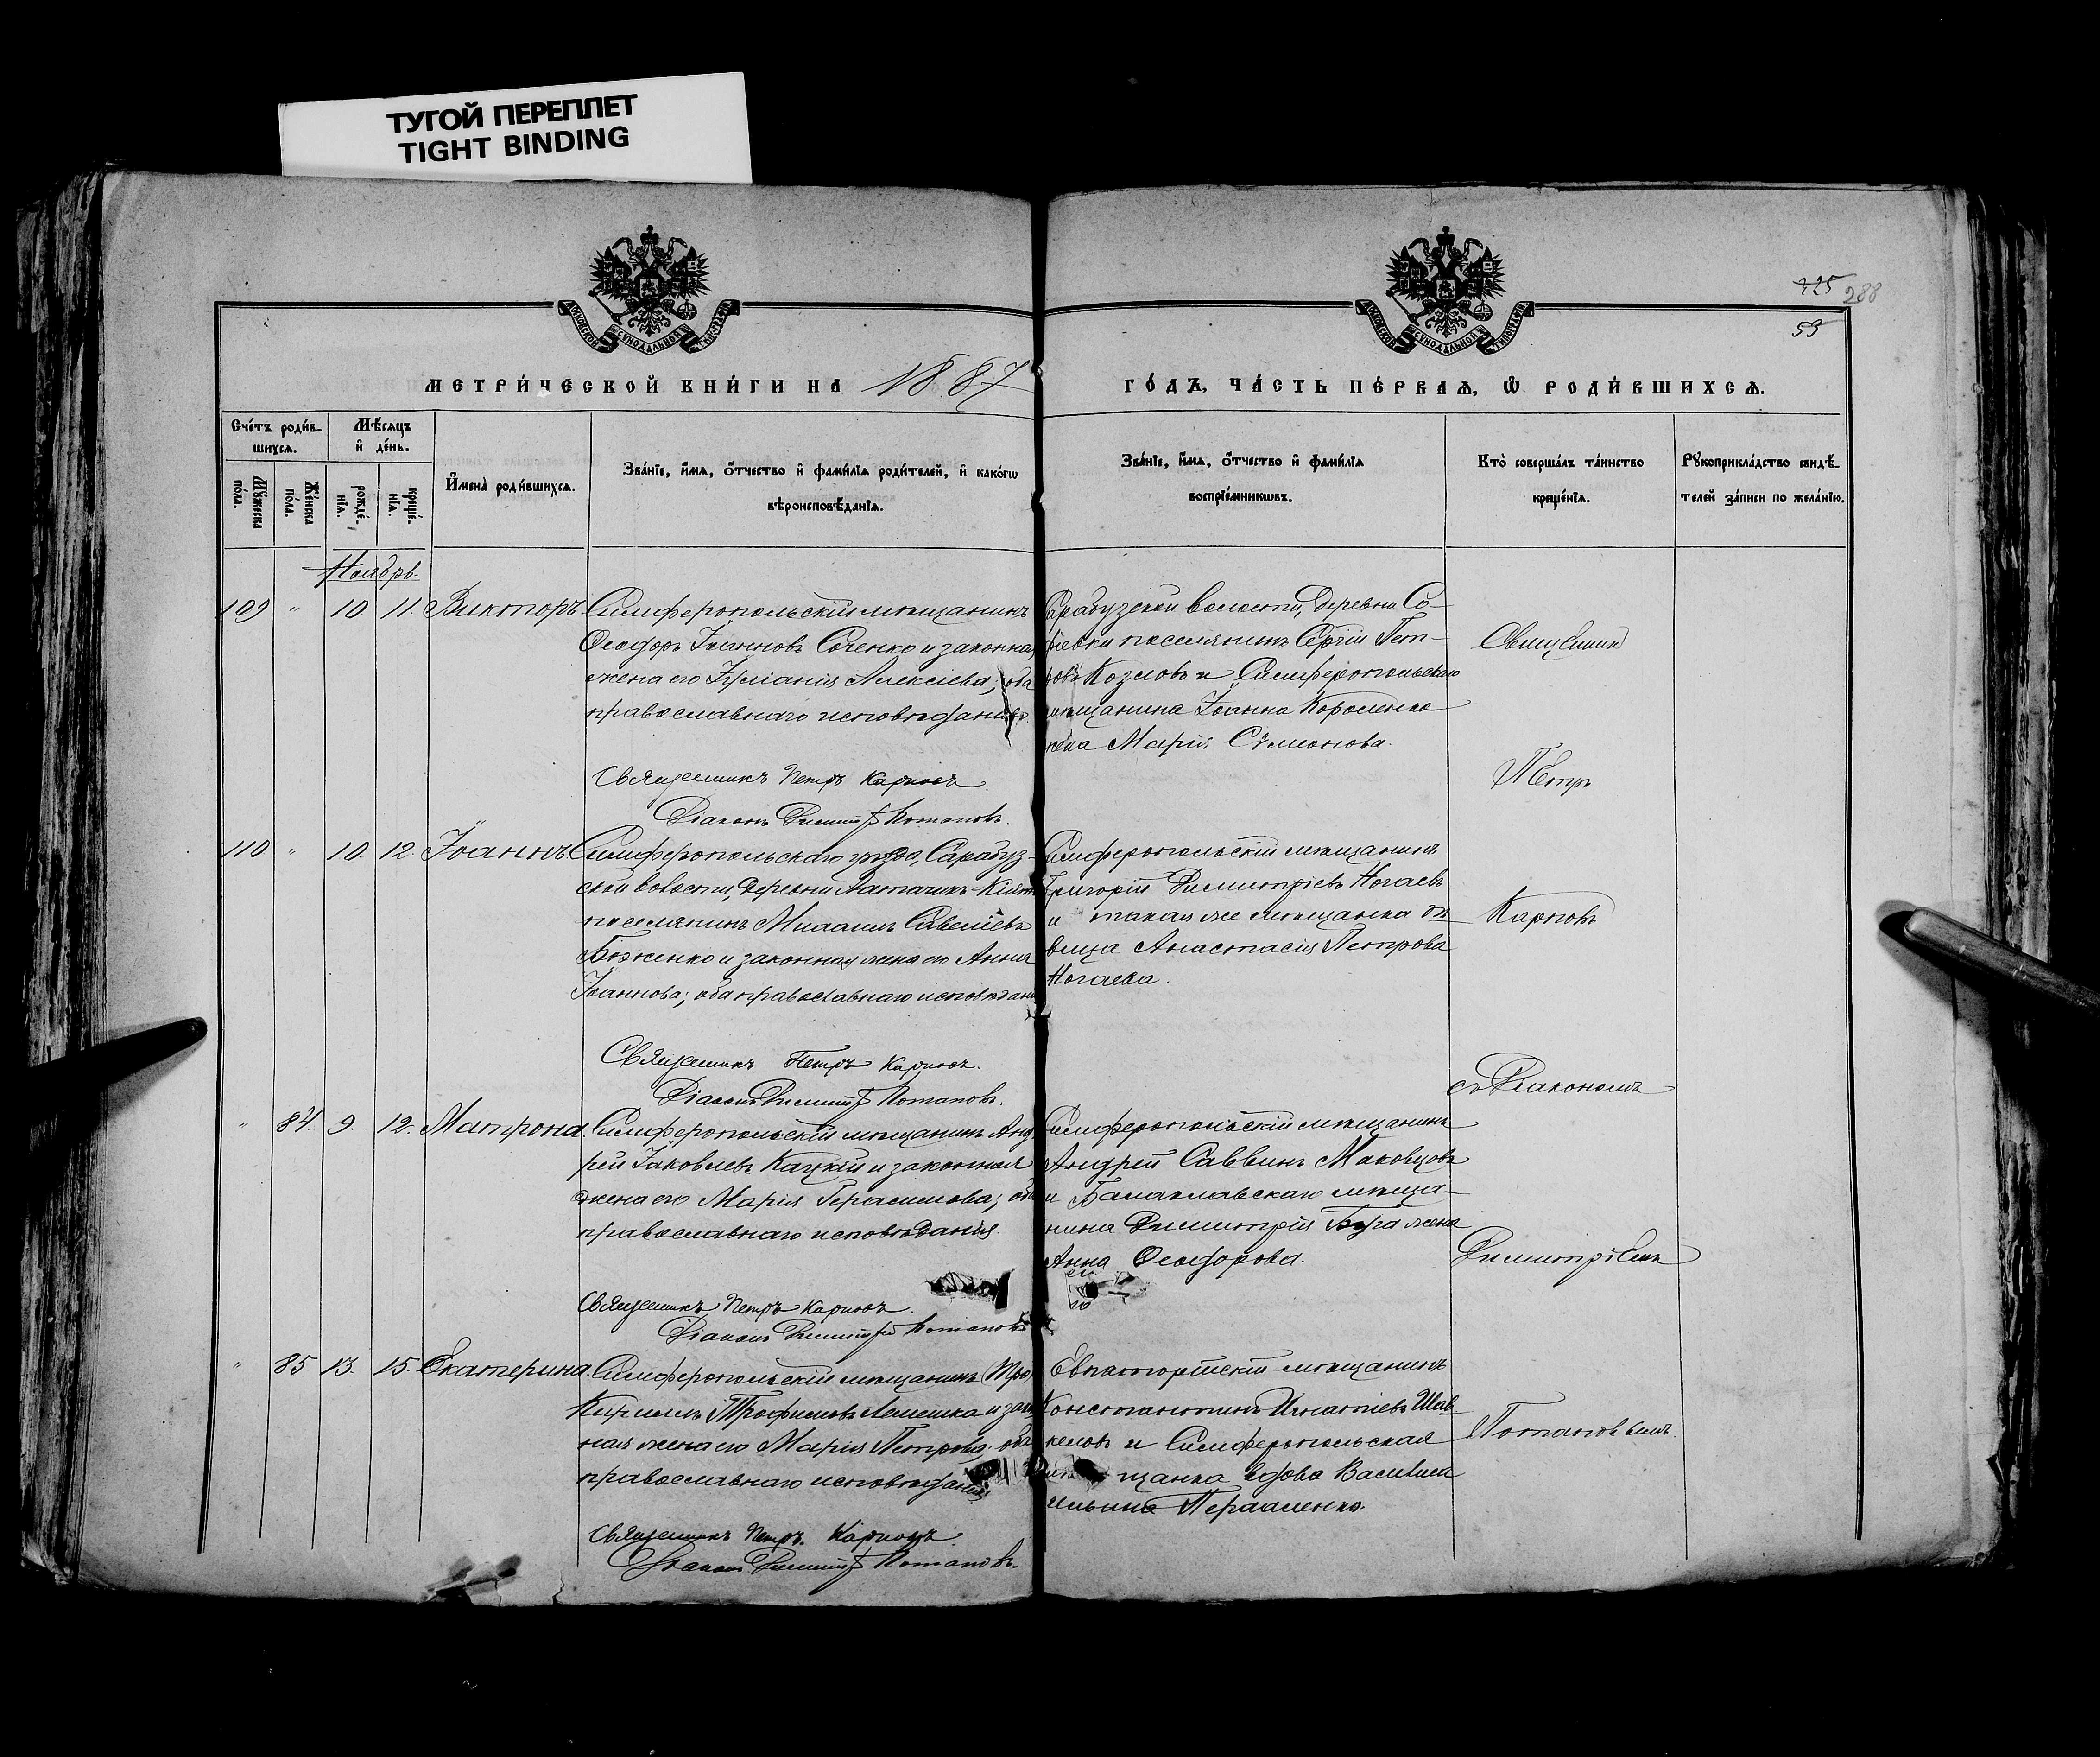 ТУГОЙ ПЕРЕПЛЕТ
TIGHT BINDING
288
59
МЕТРИ́ЧЕСКОЙ КНИ́ГИ НА 1887
ГО́ДЪ, ЧА́СТЬ ПЕ́РВАЯ, Ѿ РОДИ́ВШИХСЯ.
Сче́тъ роди́в-
шихся.
Мѣ́сяцъ
и҆ де́нь.
Му́жеска по́ла.
Же́нска по́ла.
рожде́-нїя.
креще́-нїя.
И҆мена̀ роди́вшихся.
Зва́нїе, и҆́мя, ѻ҆́тчество и҆ фами́лїя роди́телей, и҆ како́гѡ
вѣроисповѣ́данїя.
Зва́нїе, и҆́мя, ѻ҆́тчество и҆ фами́лїя
воспрїе́мникѡвъ.
Кто̀ соверша́лъ та́инство
креще́нїя.
Рꙋкоприкла́дство свидѣ́-
телей за́писи по жела́нїю.
Ноябрь.
109 " 10 11. Викторъ
Симферопольскій мѣщанинъ
Ѳеодоръ Іоанновъ Соченко и законная
жена его Іуліанія Алексіева; оба
православнаго исповѣданія.
Священникъ Петръ Карповъ.
Діаконъ Димитрій Потаповъ.
Сарабузской волости, деревни Со-
фіевки поселянинъ Сергій Пет-
ровъ Козловъ и Симферопольскаго
мѣщанина Іоанна Короленко
жена Марія Сѵмеонова.
110 " 10. 12. Іоаннъ
Симферопольскаго уѣзда, Сарабуз-
ской волости, деревни Китъ
поселянинъ Михаилъ Савеліевъ
Боженко и законная жена его Анна
Іоаннова; оба православнаго исповѣдані
Священникъ Петръ Карповъ.
Діаконъ Димитрій Потаповъ.
Симферопольскій мѣщанинъ
Григорій Димитріевъ Ногаевъ
и такая же мѣщанка дѣ-
вица Анастасія Петрова
Ногаева.
" 84. 9. 12. Матрона.
Симферопольскій мѣщанинъ Анд
рей Іаковлевъ Кацкій и законная
жена его Марія Герасимова; оба
православнаго исповѣданія.
Священникъ Петръ Карповъ.
Діаконъ Димитрій Потаповъ
Симферопольскій мѣщанинъ
Андрей Саввинъ Маковцовъ
и Балаклавскаго мѣща-
нина Димитрія Бура жена
Анна Ѳеодорова.
" 85 13. 15. Екатерина.
Симферопольскій мѣщанинъ
Кириллъ Трофимовъ Лемешка и закон
ная жена его Марія Петрова; оба
православнаго исповѣданія
Священникъ Петръ Карповъ.
Діаконъ Димитрій Потаповъ.
Евпаторійскій мѣщанинъ
Константинъ Игнатіевъ Шав
келовъ и Симферопольская
мѣщанка вдова Василиса
Ильина
Священникъ
Петръ
Карповъ
съ Діакономъ
Димитріемъ
Потаповымъ.